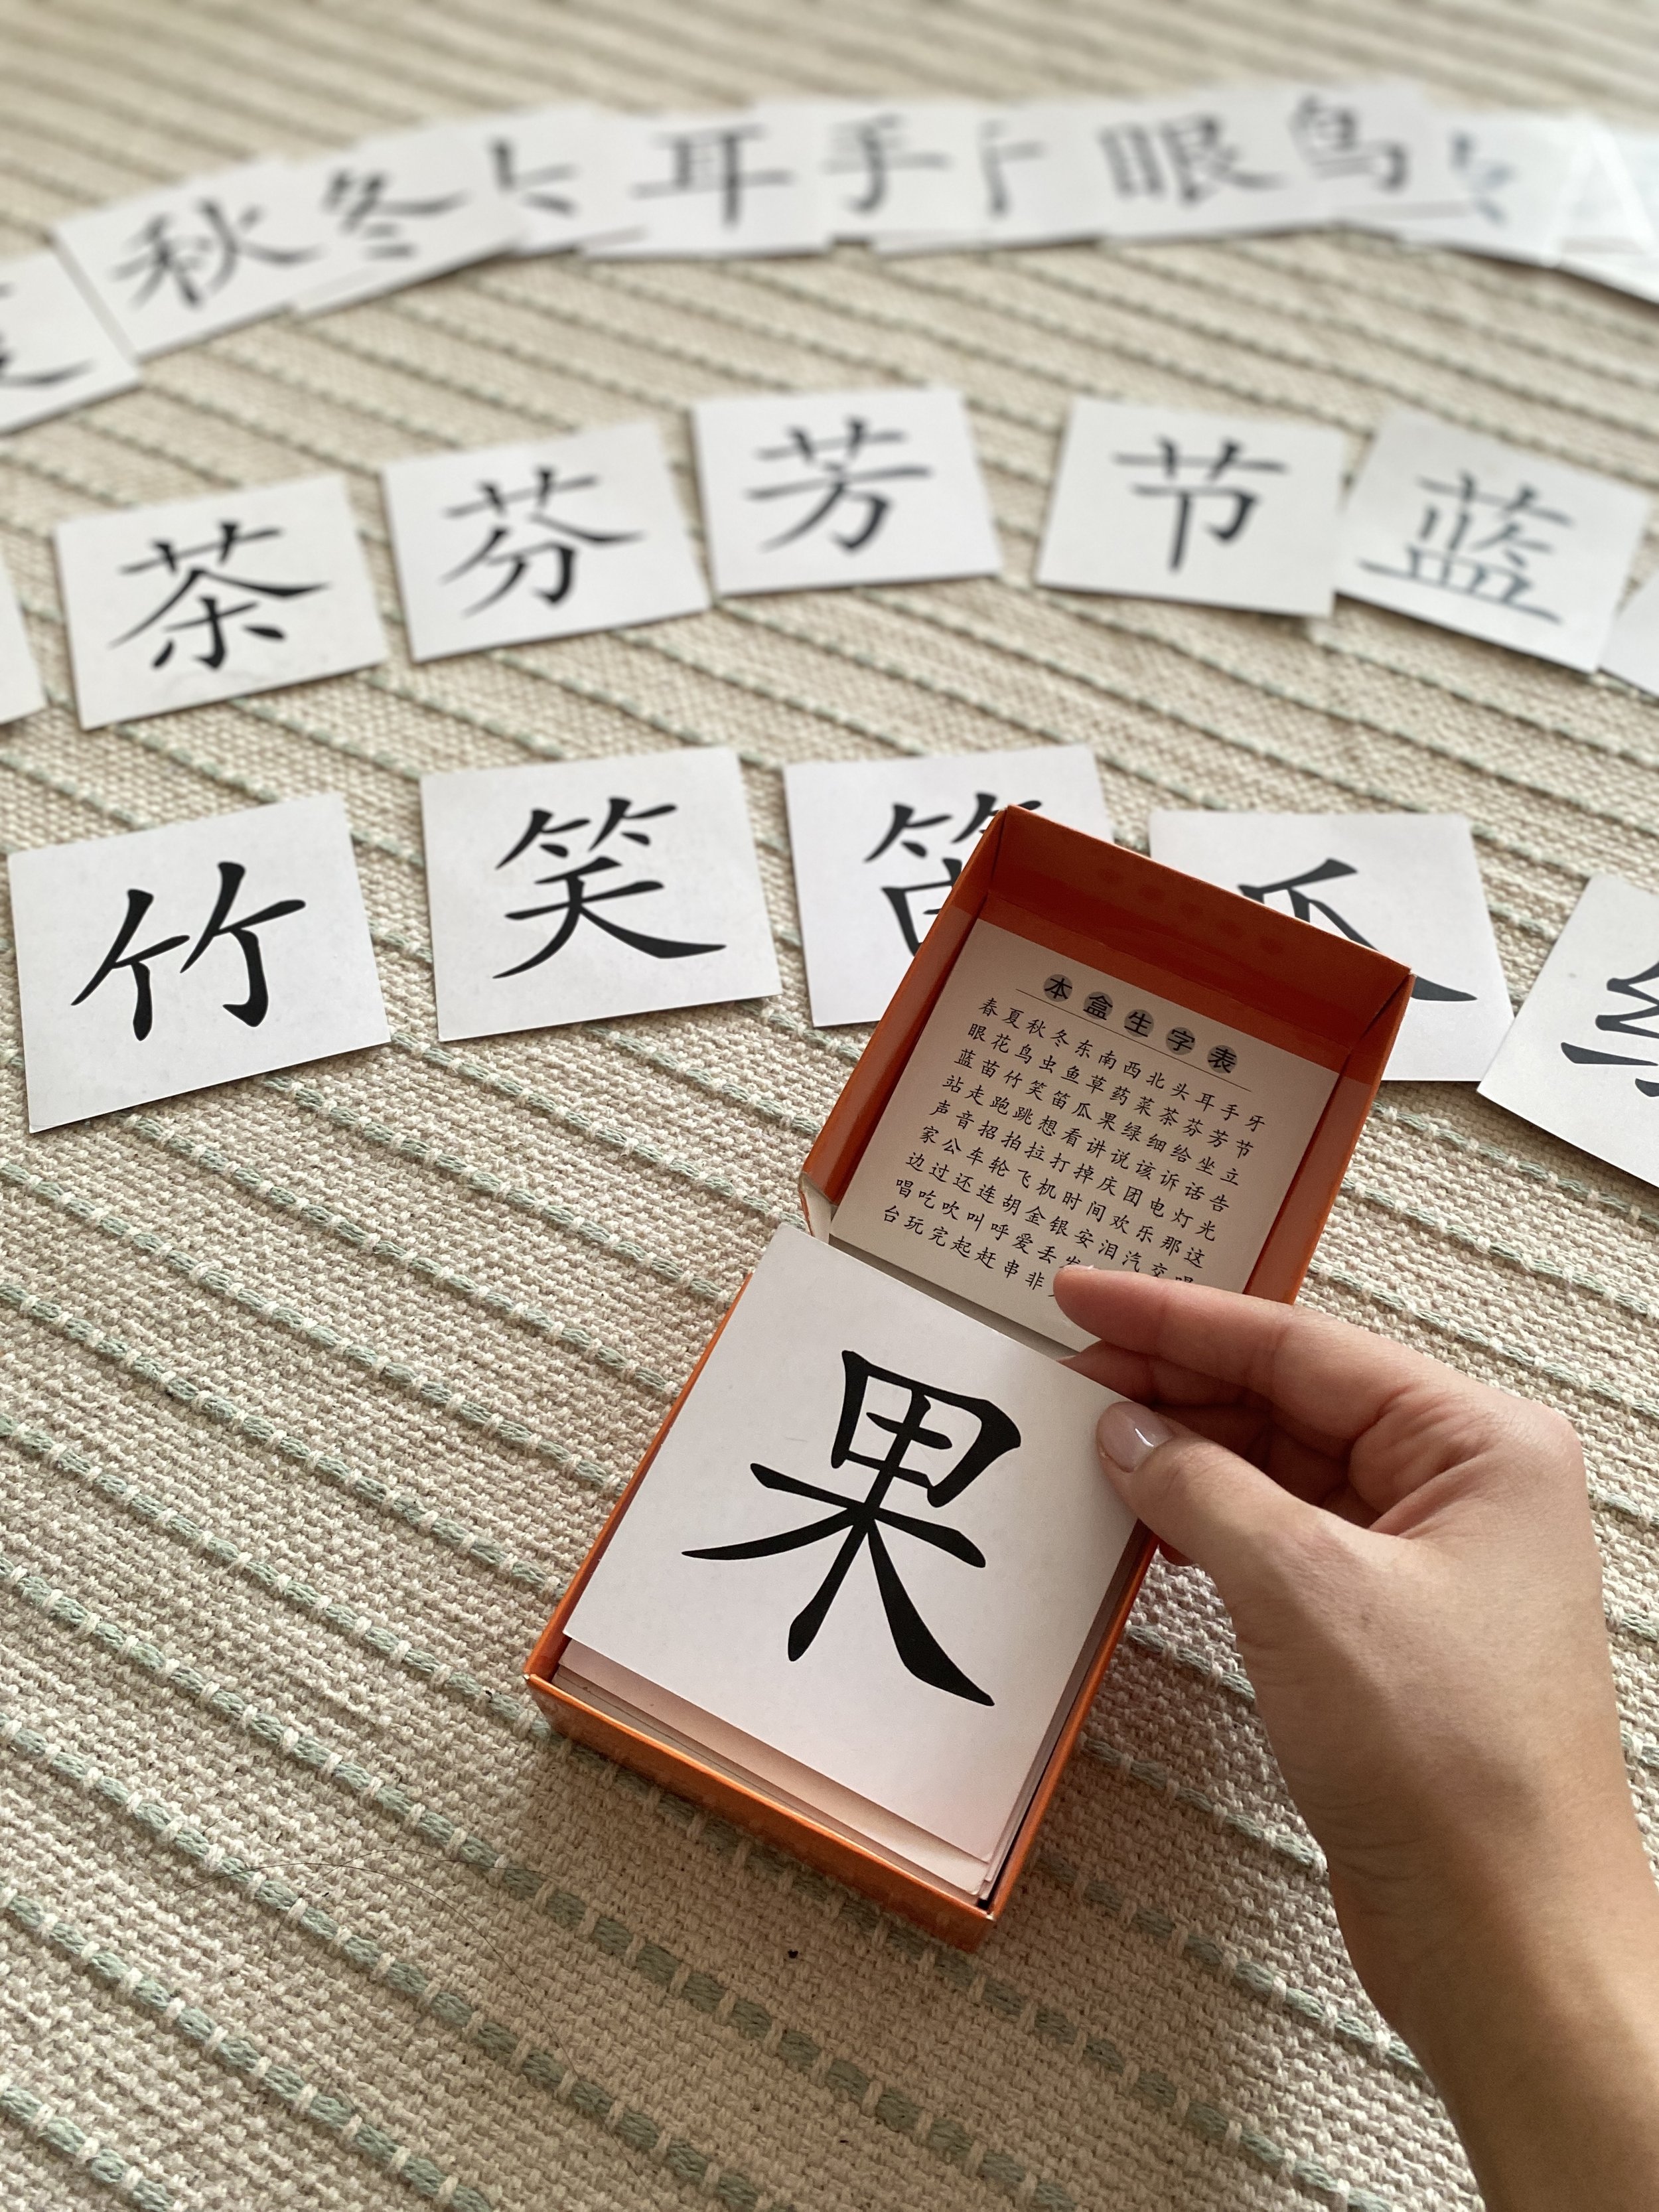 秋 冬 耳 手 眼 鸟
茶 芬 芳 节 蓝
竹 笑 笛 瓜
本盒生字表
春夏秋冬东南西北头耳手牙
眼花鸟虫鱼草药菜茶芬芳节
蓝苗竹笑笛瓜果绿细给坐立
站走跑跳想看讲说该诉话告
声音招拍拉打掉庆团电灯光
家公车轮飞机时间欢乐那这
边过还连胡金银安泪汽交
唱吃吹叫呼爱丢
台玩完起赶串非
果